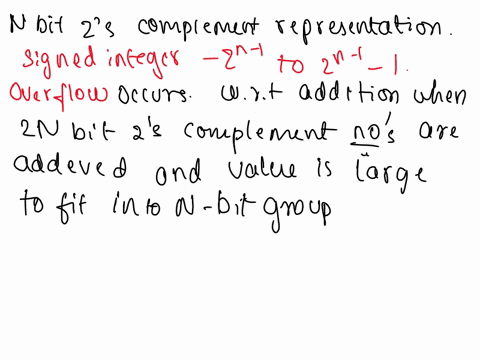 N bit 2's complement representation.
Signed integer -2^{n-1} to 2^{n-1} - 1.
Overflow occurs. w.r.t addition when
2N bit 2's complement no's are
addeved and value is large
to fit into N-bit group